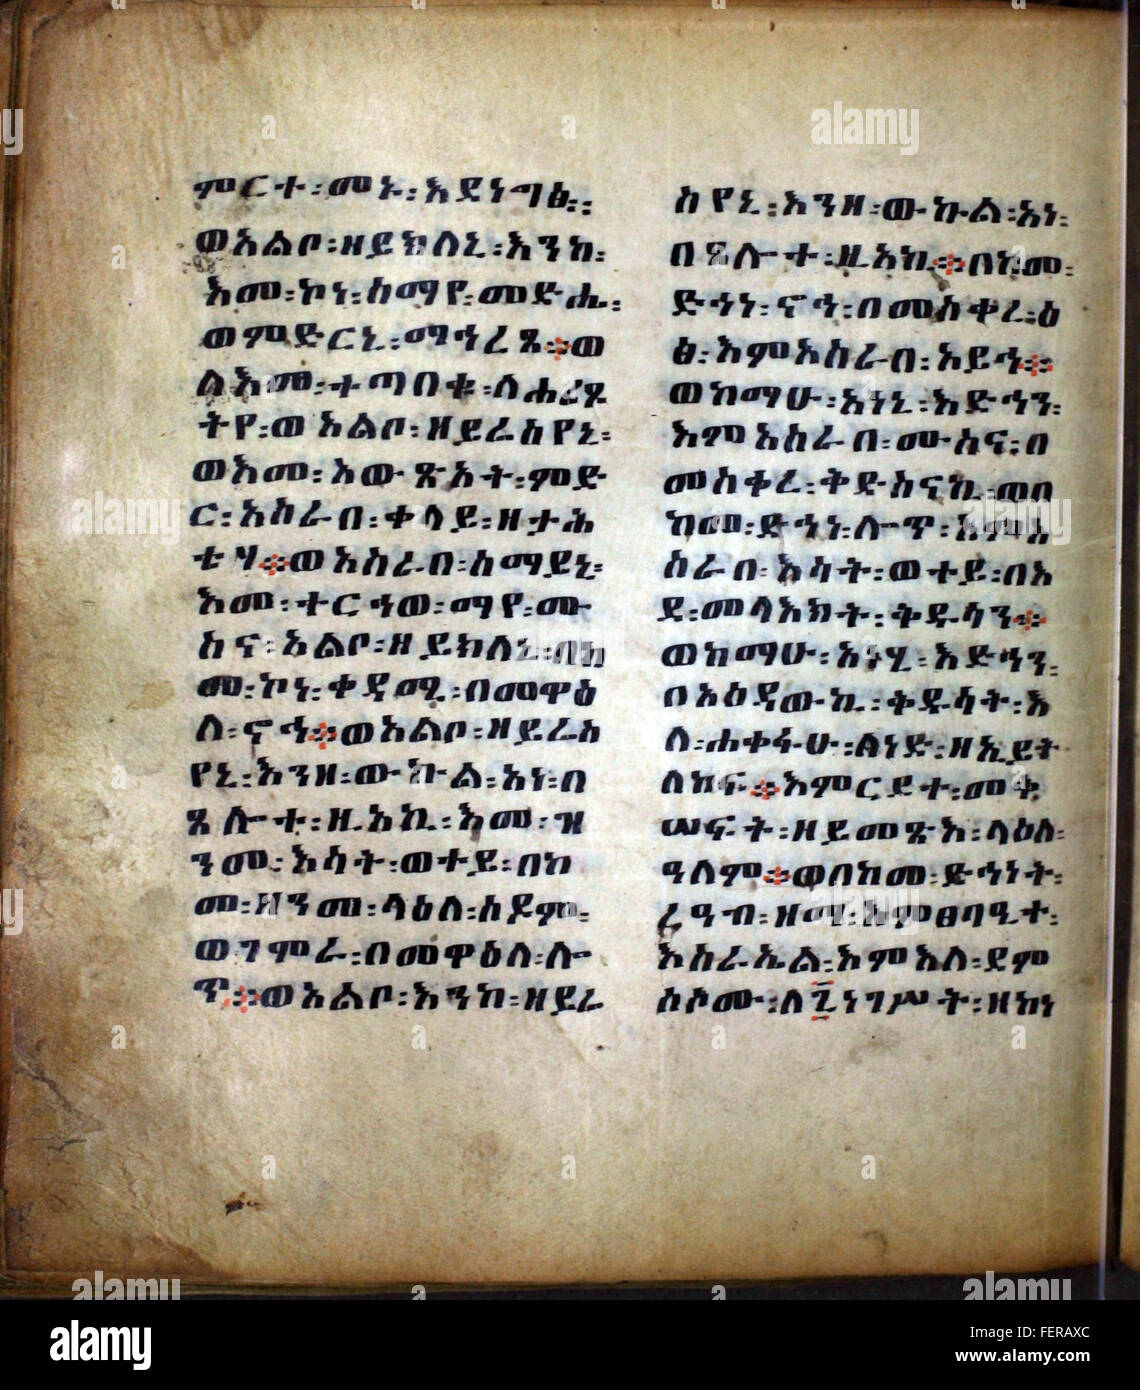 ምርተ፡መኑ፡እደነግፅ፡፡
ወአልቦ፡ዘይክለኒ፡እንከ፡
እመ፡ኮነ፡ስማየ፡መድሒ፡
ወምድርኒ፡ማኅረጼ፨ወ
ለእመ፡ተጣበቁ፡ለሐ
ትየ፡ወአልቦ፡ዘይሬስየኒ፡
ወእመ፡አውጽአት፡ምድ
ር፡አስራበ፡ቀላይ፡ዘታሕ
ቴሃ፨ወአስራበ፡ሰማይኒ፡
እመ፡ተርኅወ፡ማየ፡ሙ
ስና፡አልቦ፡ዘይክለኒ፡በከ
መ፡ኮነ፡ቀዳሚ፡በመዋዕ
ለ፡ኖኅ፨ወአልቦ፡ዘይሬስ
የኒ፡እንዘ፡ውኩል፡አነ፡በ
ጼሎተ፡ዚአኪ፡እመ፡ዝ
ንመ፡እሳት፡ወተይ፡በከ
መ፡ዘንመ፡ላዕለ፡ሰዶም፡
ወገምራ፡በመዋዕለ፡ሎ
ጥ፨ወአልቦ፡እንከ፡ዘይሬ
ስየኒ፡እንዘ፡ውኩል፡አነ፡
በጼሎተ፡ዚአኪ፨በከመ፡
ድኅነ፡ኖኅ፡በመስቀረ፡ዕ
ፅ፡እምአስራበ፡አይኅ፨
ወከማሁ፡አነኒ፡እድኅን፡
እምአስራበ፡ሙስና፡በ
መስቀረ፡ቅድስናኪ፡ወበ
ከመ፡ድኅነ፡ሎጥ፡እምአ
ስራበ፡እሳት፡ወተይ፡በእ
ደ፡መላእክት፡ቅዱሳን፨
ወከማሁ፡አነሂ፡እድኅን፡
በአዕዳውኪ፡ቅዱሳት፡እ
ለ፡ሐቀፋሁ፡ለነድ፡ዘኢይት
ለከፍ፨እምርደተ፡መቅ
ሠፍት፡ዘይመጼእ፡ላዕለ፡
ዓለም፨ወበከመ፡ድኅነት፡
ረዓብ፡ዘማ፡እምፀባዒተ፡
እስራኤል፡እምእለ፡ደም
ሰሶሙ፡ለ፯ነገሥት፡ዘከነ
alamy
Image ID: FERAXC
www.alamy.com